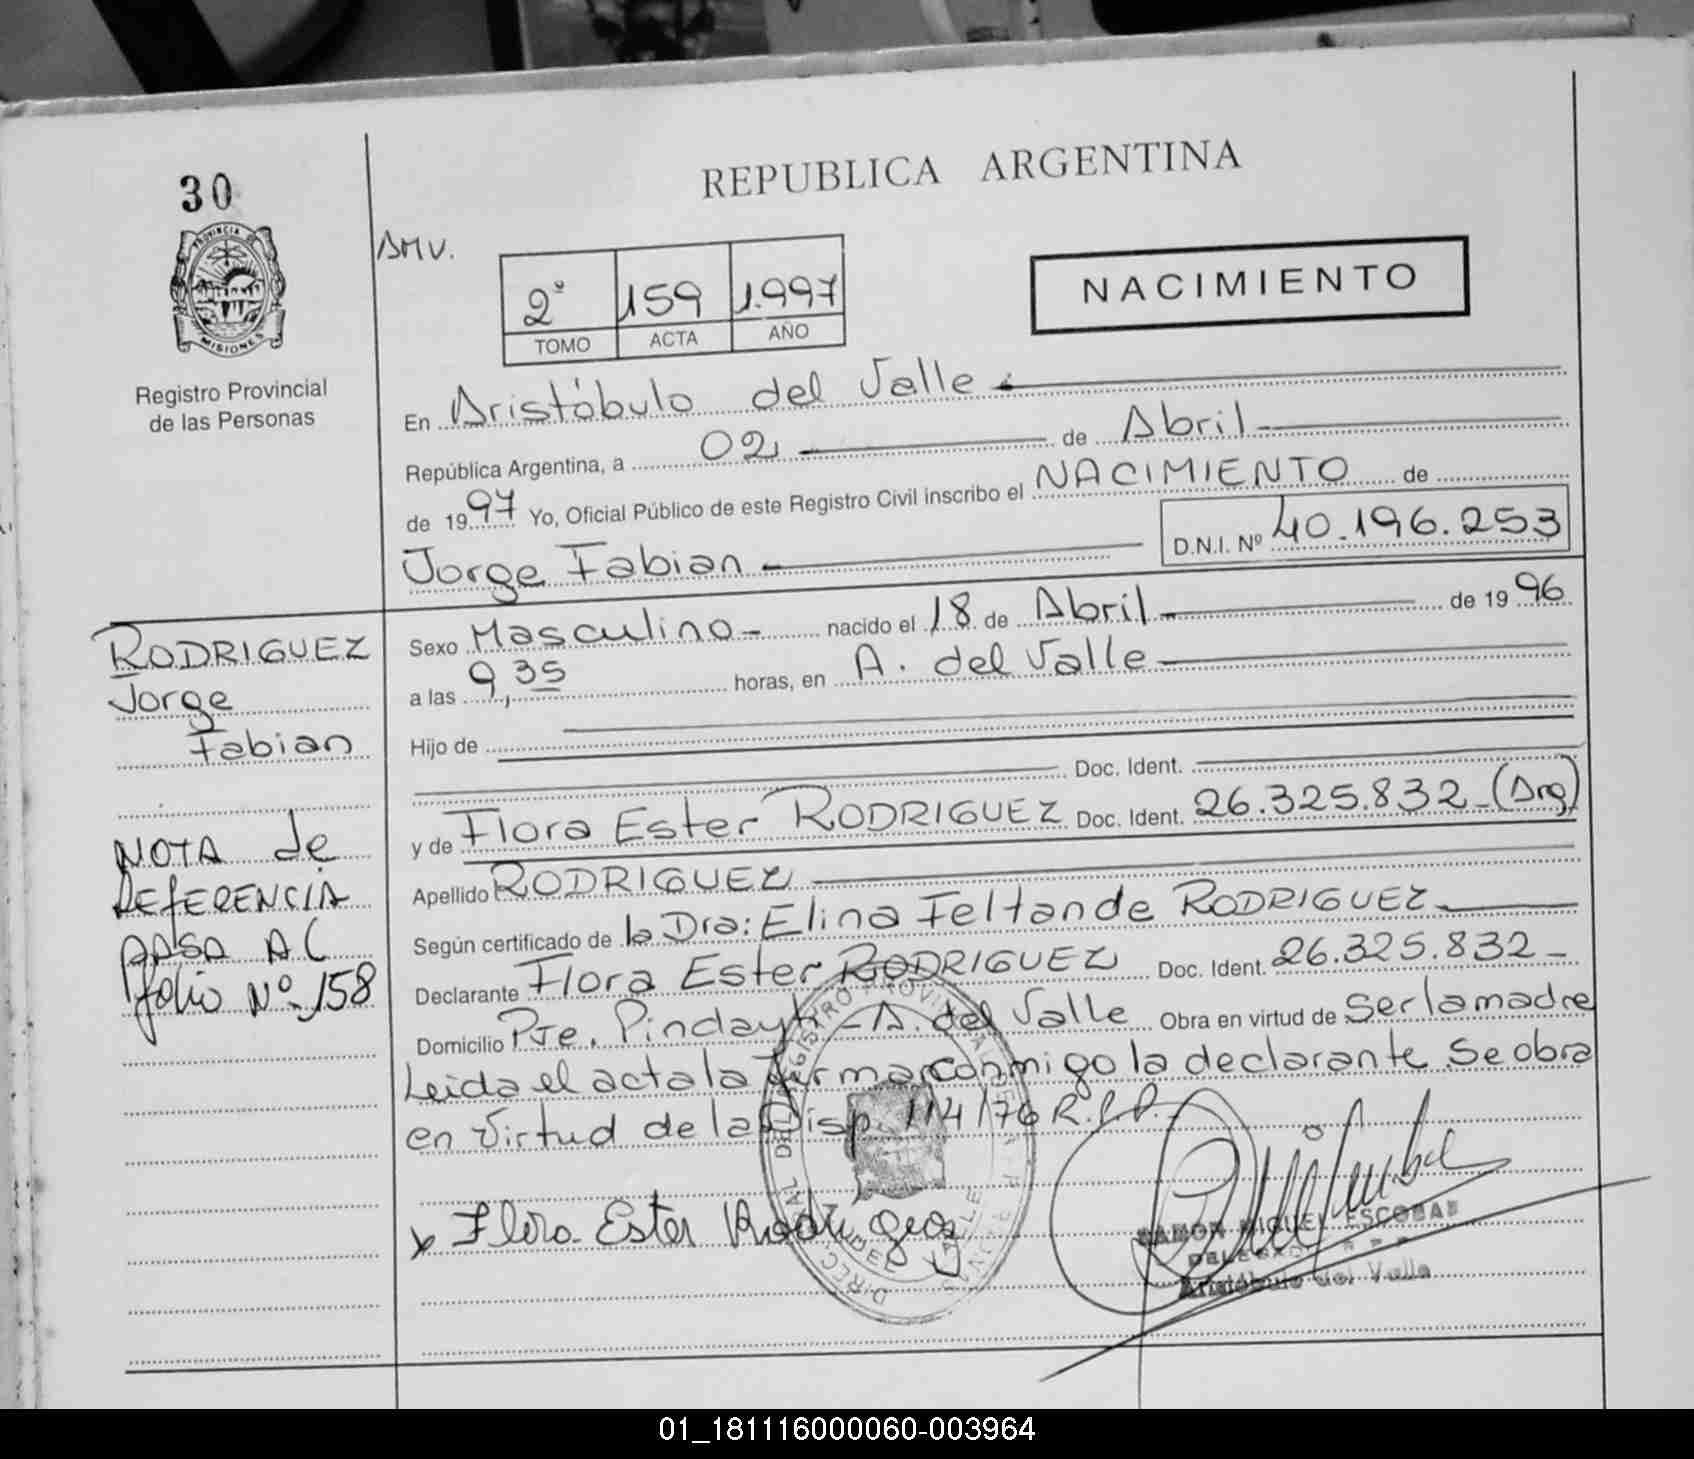 30
PROVINCIA DE
MISIONES
Registro Provincial
de las Personas
REPUBLICA ARGENTINA
AMV.
2º 159 1.997
TOMO ACTA AÑO
NACIMIENTO
En Aristóbulo del Valle
República Argentina, a 02 de Abril
de 1997 Yo, Oficial Público de este Registro Civil inscribo el NACIMIENTO de
Jorge Fabian D.N.I. Nº 40.196.253
RODRIGUEZ
Jorge
Fabian
NOTA de
REFERENCIA
PASA AL
folio Nº 158
Sexo Masculino nacido el 18 de Abril de 1996
a las 9,35 horas, en A. del Valle
Hijo de
Doc. Ident.
y de Flora Ester RODRIGUEZ Doc. Ident. 26.325.832 (Arg)
Apellido RODRIGUEZ
Según certificado de la Dra: Elina Feltan de RODRIGUEZ
Declarante Flora Ester RODRIGUEZ Doc. Ident. 26.325.832
Domicilio Pje. Pindayti - A. del Valle Obra en virtud de Ser la madre
Leida el acta la firma conmigo la declarante. Se obra
en Virtud de la Disp. 114/76 R.P.P.
x Flora Ester Rodriguez
RAMON MIGUEL ESCOBAR
Aristóbulo del Valle
01_181116000060-003964